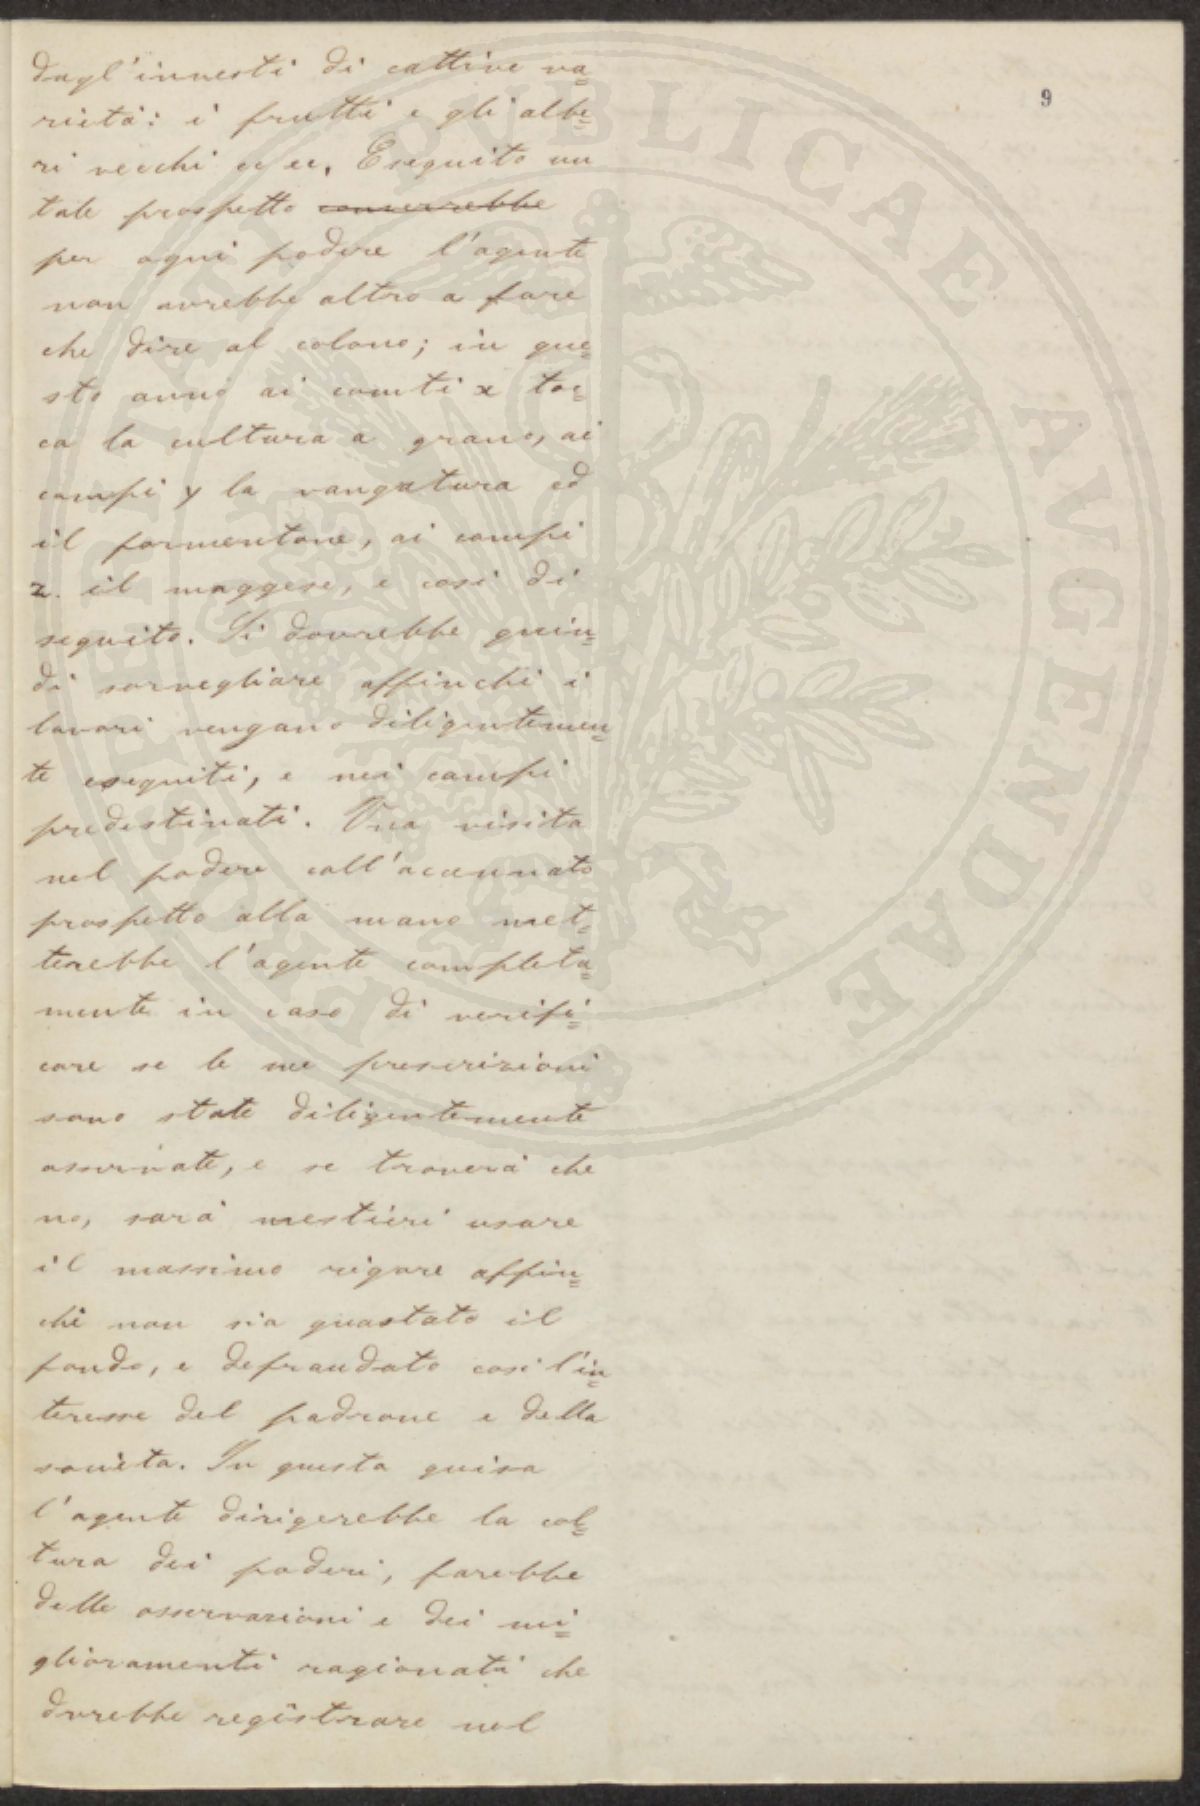 9
dagl'innesti di cattive va=
rietà: i frutti e gli albe=
ri vecchi ec ec. Eseguito un
tale prospetto converrebbe
per ogni podere l'agente
non avrebbe altro a fare
che dire al colono; in que=
sto anno ai camti x toc=
ca la cultura a grano, ai
campi y la vangatura ed
il formentone, ai campi
z. il maggese, e così di
seguito. Si dovrebbe quin=
di sorvegliare affinchè i
lavori vengano diligentemen=
te eseguiti, e nei campi
predestinati. Una visita
nel podere coll'accennato
prospetto alla mano met=
terebbe l'agente completa=
mente in caso di verifi=
care se le sue prescrizioni
sono state diligentemente
osservate, e se troverà che
no, sarà mestieri usare
il massimo rigore affin=
chè non sia guastato il
fondo, e defraudato così l'in=
teresse del padrone e della
società. In questa guisa
l'agente dirigerebbe la col=
tura dei poderi, farebbe
delle osservazioni e dei mi=
glioramenti ragionati che
dvrebbe registrare nel
PVBLICAE AVGENDAE